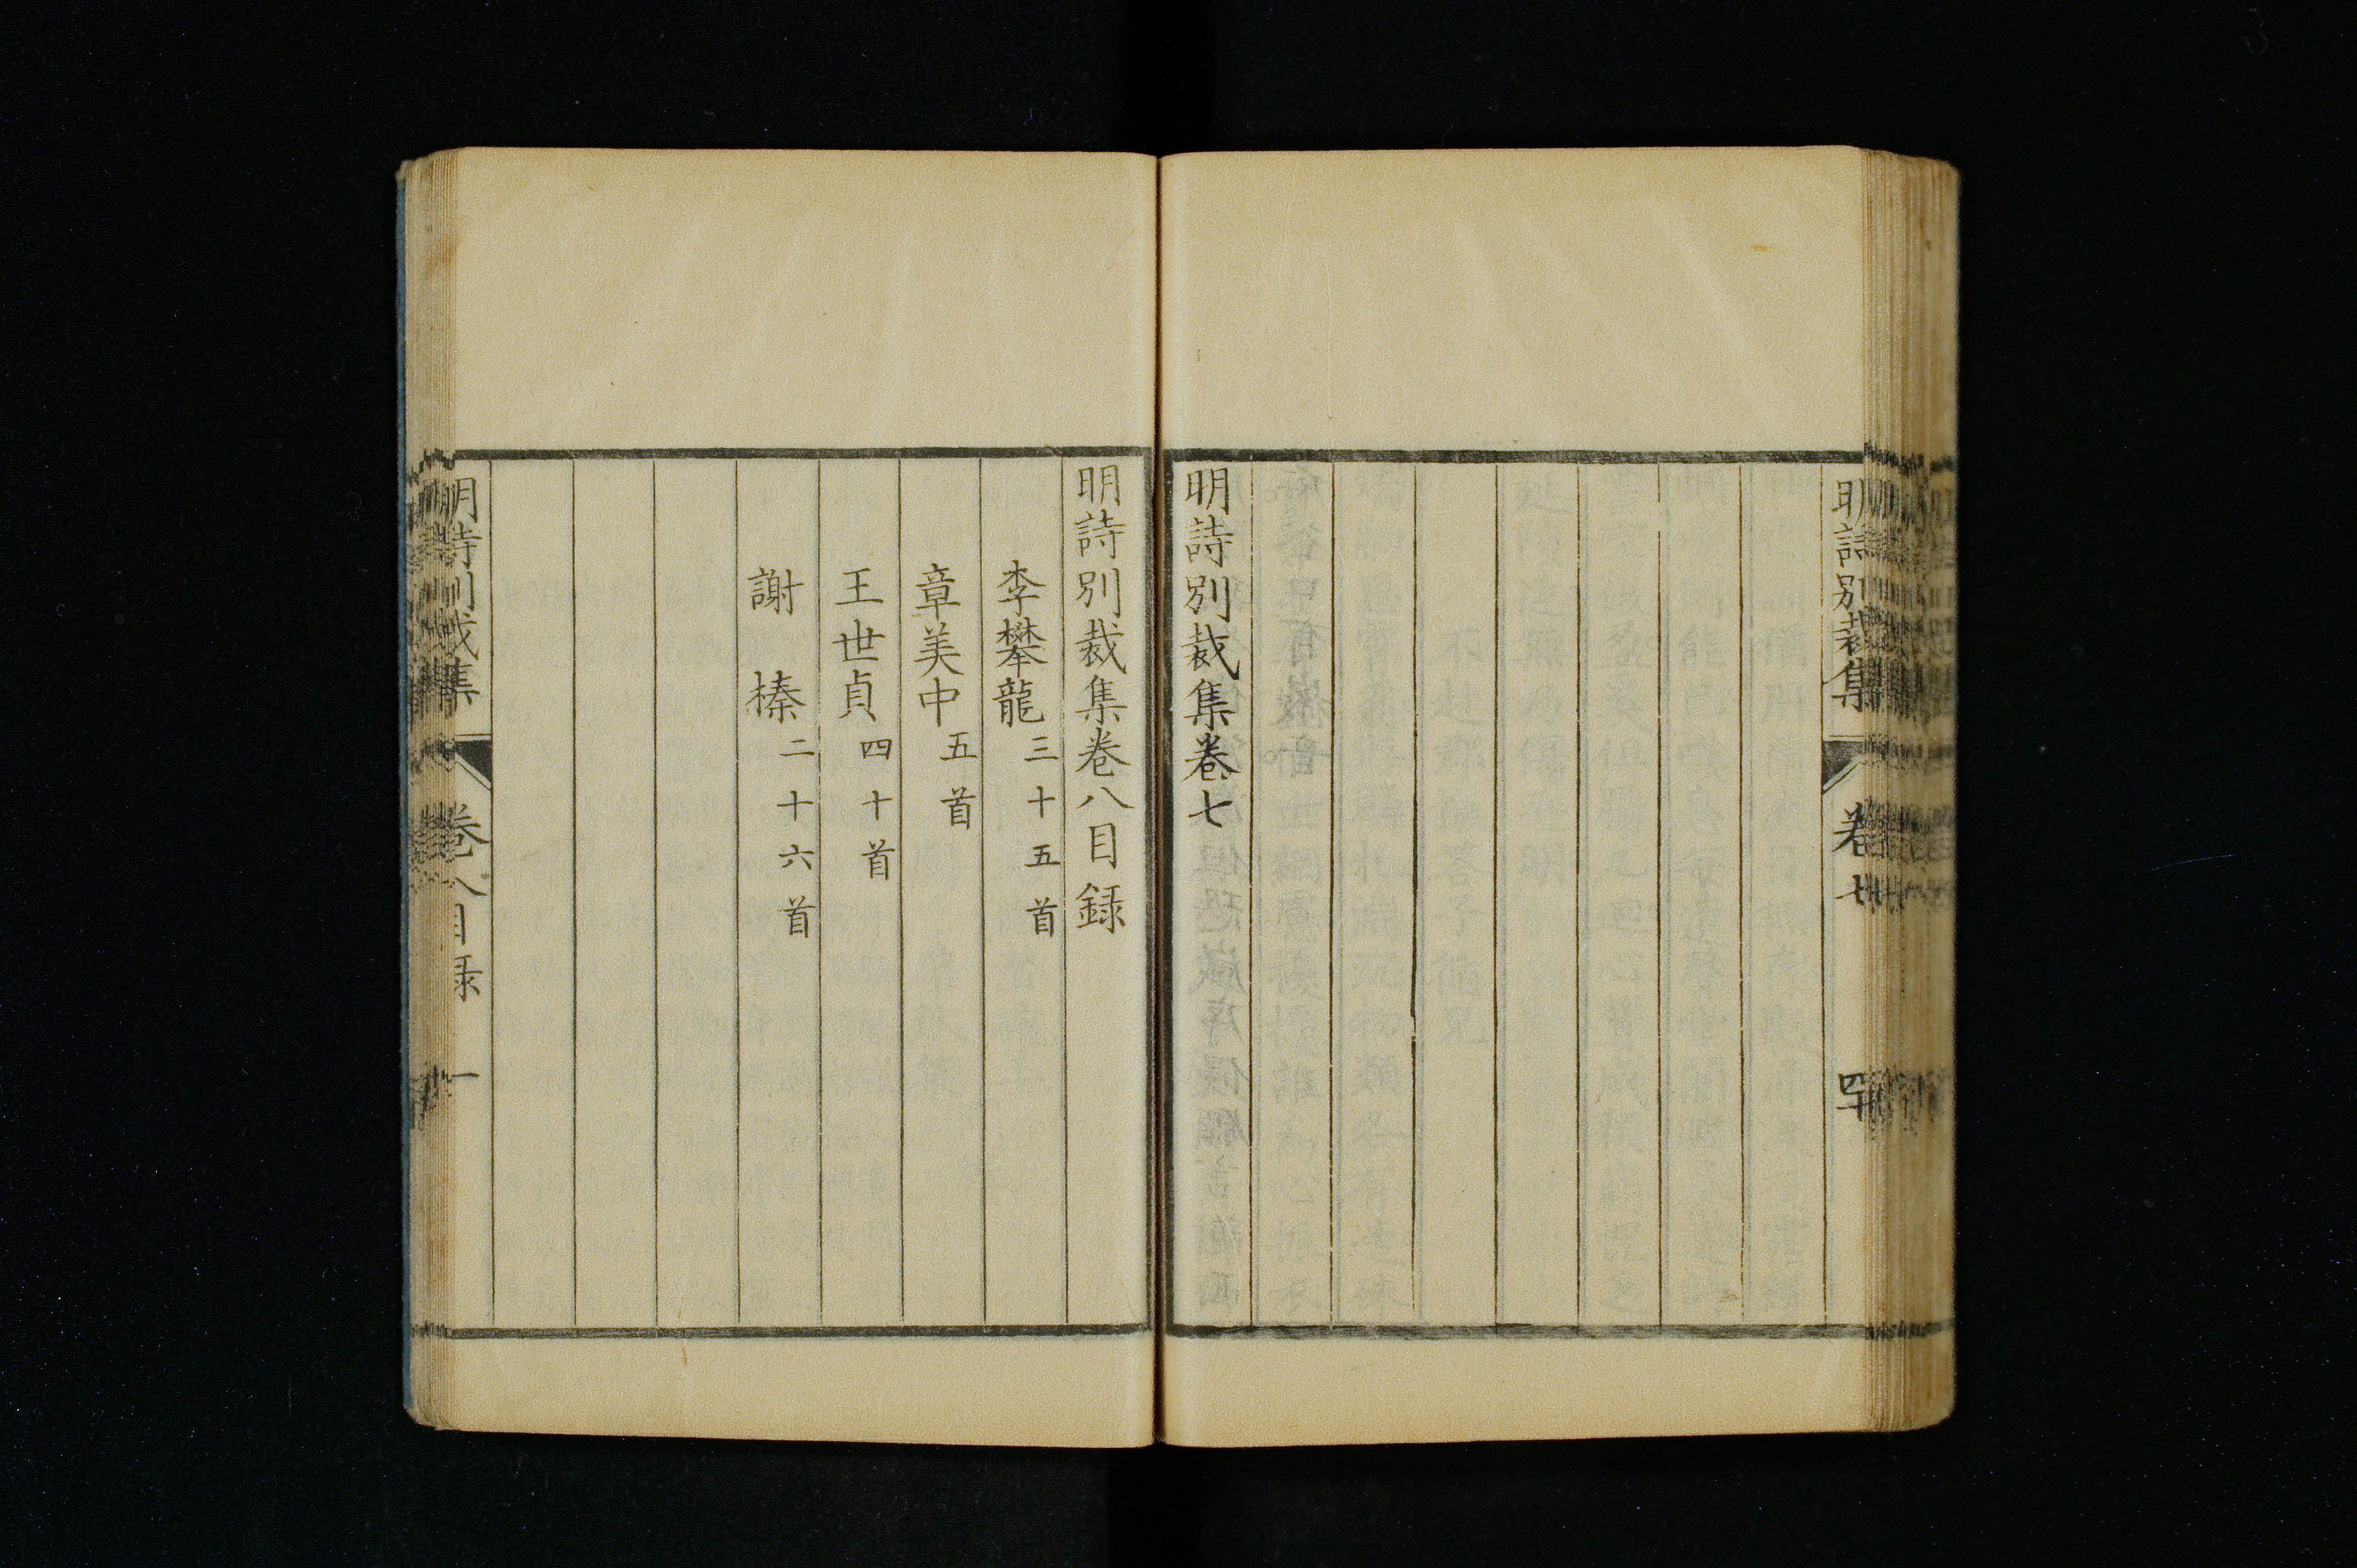 明詩別裁集 卷七
明詩別裁集卷七
明詩別裁集卷八目録
李攀龍三十五首
章美中五首
王世貞四十首
謝榛二十六首
明詩別裁集 卷八目録 一